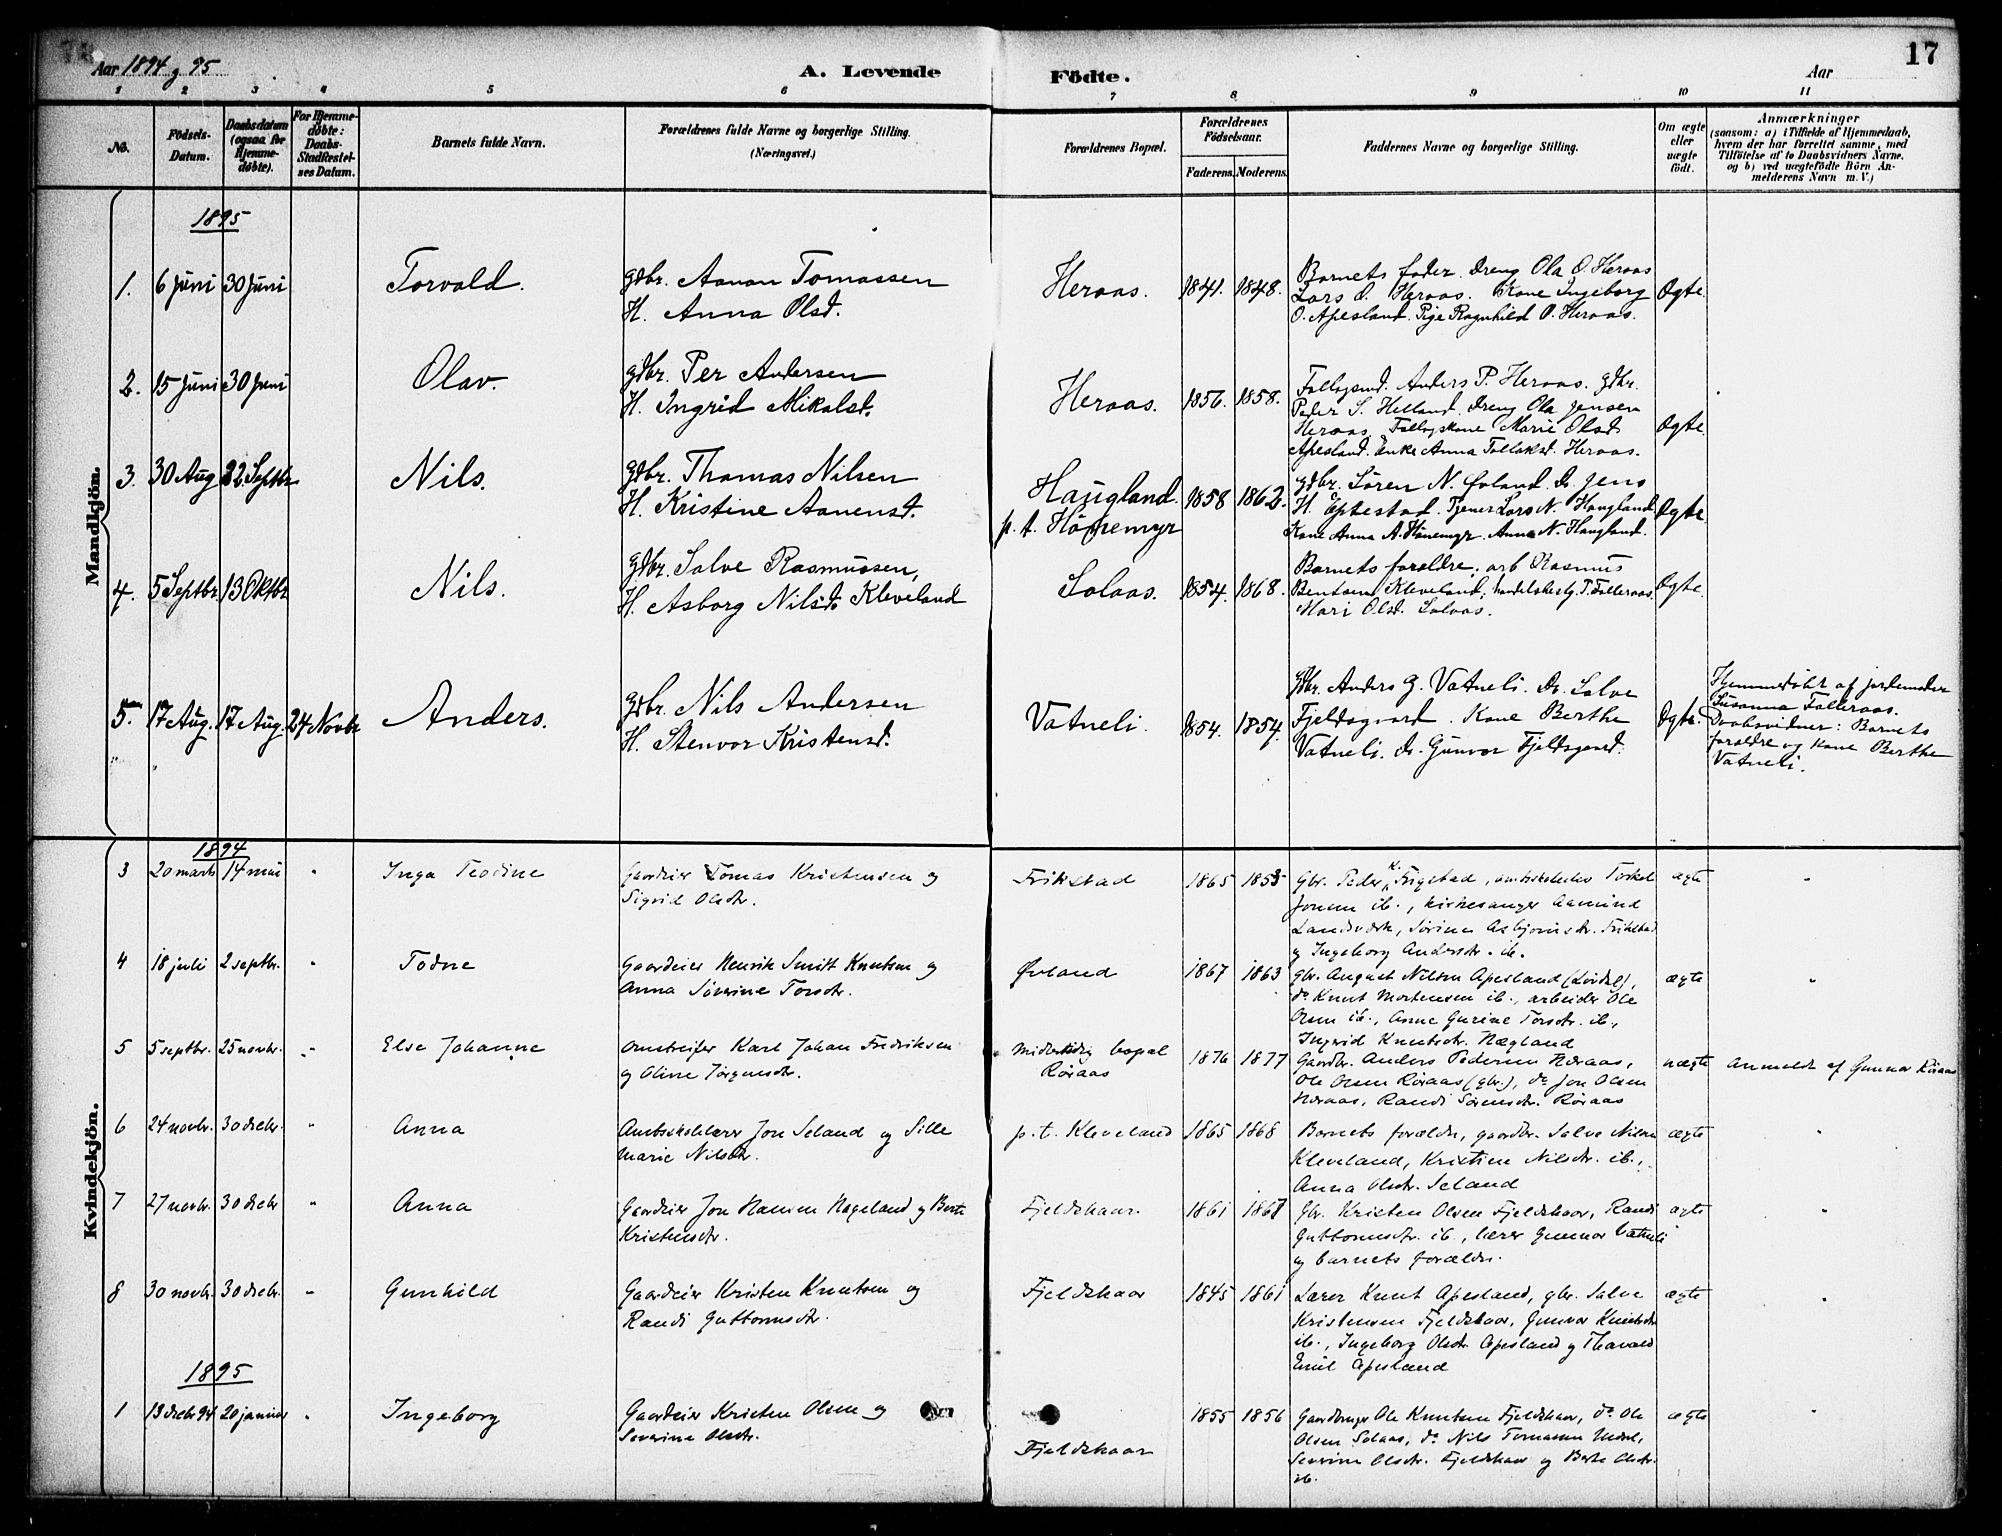 Aar 1894 og 95
A. Levende
Födte.
Aar
17
1 2 3 4 5 6 7 8 9 10 11
No.
Födsels-Datum.
Daabsdatum (ogsaa for Hjemme-döbte).
For Hjemme-döbte: Daabs-Stadfæstel-ses Datum.
Barnets fulde Navn.
Forældrenes fulde Navne og borgerlige Stilling. (Næringsvei.)
Forældrenes Bopæl.
Forældrenes Födselsaar.
Faderens. Moderens.
Faddernes Navne og borgerlige Stilling.
Om ægte eller uægte födt.
Anmærkninger
(saasom: a) i Tilfælde af Hjemmedaab,
hvem der har forrettet samme, med
Tilföielse af to Daabsvidners Navne.
og b) ved uægtefödte Börn An-
melderens Navn m. V.)
Mandkjön.
1895
1. 6 Juni 30 Juni Torvald.
gdbr. Aanon Tomassen
H. Anna Olsd.
Heraas. 1841. 1848.
Barnets fader. Dreng Ola O. Heraas
Lars O. Heraas. Kone Ingeborg
O. Apesland. Pige Ragnhild O. Heraas.
Ægte
2. 15 Juni 30 Juni Olav.
gdbr. Per Andersen
H. Ingrid Mikalsd.
Heraas. 1856. 1858.
Anders P. Heraas. gdbr.
Peder S. Helland. Dreng Ola Jensen
Heraas. Marie Olsd
Apesland. Enke Anna Tollaksd. Heraas.
Ægte
3. 30 Aug 22 Septbr Nils.
gdbr. Thomas Nilsen
H. Kristine Aanensd.
Haugland. p. t. Hönemyr 1858 1862.
gdbr. Sören N. Øvland. Do. Jens
H. Eptestad. Tjener Lars N. Haugland
Kone Anna A. Hönemyr Anna N. Haugland.
Ægte
4. 5 Septbr 13 Oktbr Nils.
gdbr. Salve Rasmussen,
H. Asborg Nilsd. Kleveland
Solaas. 1854. 1868.
Barnets forældre. arb Rasmus
Bentsen Kleveland, T. Følleraas.
Mari Olsd. Solaas.
Ægte
5. 17 Aug. 17 Aug. 24 Novbr Anders.
gdbr Nils Andersen
H. Stenvor Kristensd.
Vatneli. 1854. 1854.
gdbr. Anders G. Vatneli. Do. Salve
Fjeldsgaard. Kone Berthe
Vatneli. do. Gunvor Fjeldsgaard.
Ægte.
Hjemmedöbt af jordemoder
Susanna Følleraas.
Daabsvidner: Barnets
forældre og Kone Berthe
Vatneli.
Kvindekjön.
1894
3 20 marts 14 mai " Inga Teodine
Gaardeier Tomas Kristensen og
Sigrid Olsdtr.
Frikstad 1865 1855
Gbr. Peder K. Frigstad, Torkel
Jonsen ib., kirkesanger Aamund
Landsværk, Sørine Asbjørnsdtr. Frikstad
og Ingeborg Andersdtr. ib.
ægte "
4 18 juli 2 septbr. " Todne
Gaardeier Henrik Smitt Knutsen og
Anna Sïverine Torsdtr.
Øvland 1867 1863
Gbr. August Nilsen Apesland (Lördal),
do Knut Mortensen ib., arbeider Ole
Olsen ib., Anne Gurine Torsdtr. ib.,
Ingrid Knutsdtr. Hægland
ægte "
5 5 septbr. 25 novbr. " Else Johanne
Omstreifer Karl Johan Fredriksen
og Oline Jørgensdtr.
Midlertidig bopæl Røraas 1876 1877
Gaardbr. Anders Pedersen Heraas,
Ole Olsen Røraas (gbr.), do Jon Olsen
Heraas, Randi Sørensdtr. Røraas
uægte Anmeldt af Gunnar Røraas
6 24 novbr. 30 decbr. " Anna
Amtsskolelærer Jon Seland og Sille
Marie Nilsdtr.
p. t. Kleveland 1865 1868
Barnets forældre, gaardbr. Salve Nilsen
Kleveland, Kristine Nilsdtr. ib.,
Anna Olsdtr. Seland
ægte "
7 27 novbr. 30 decbr " Anna
Gaardeier Jon Hansen Hageland og Berte
Kristensdtr.
Fjeldskaar 1861 1867
Gbr. Kristen Olsen Fjeldskaar, Randi
Guttormsdtr. ib., lærer Gunnar Vatneli
og barnets forældre.
ægte "
8 30 novbr. 30 decbr. " Gunhild
Gaardeier Kristen Knutsen og
Randi Guttormsdtr.
Fjeldskaar 1845 1861
Lærer Knut Apesland, gbr. Salve
Kristensen Fjeldskaar, Gunvor Knutsdtr
ib., Ingeborg Olsdtr. Apesland og Thorvald
Emil Apesland
ægte "
1895
1 13 decbr 94 20 januar " Ingeborg
Gaardeier Kristen Olsen og
Severine Olsdtr.
Fjeldskaar 1855 1856
Gaardbruger Ole Knutsen Fjeldskaar, do Ole
Olsen Solaas, do Nils Tomassen
Severine Olsdtr. Fjeldskaar og Berte Olsdtr.
ib.
ægte "